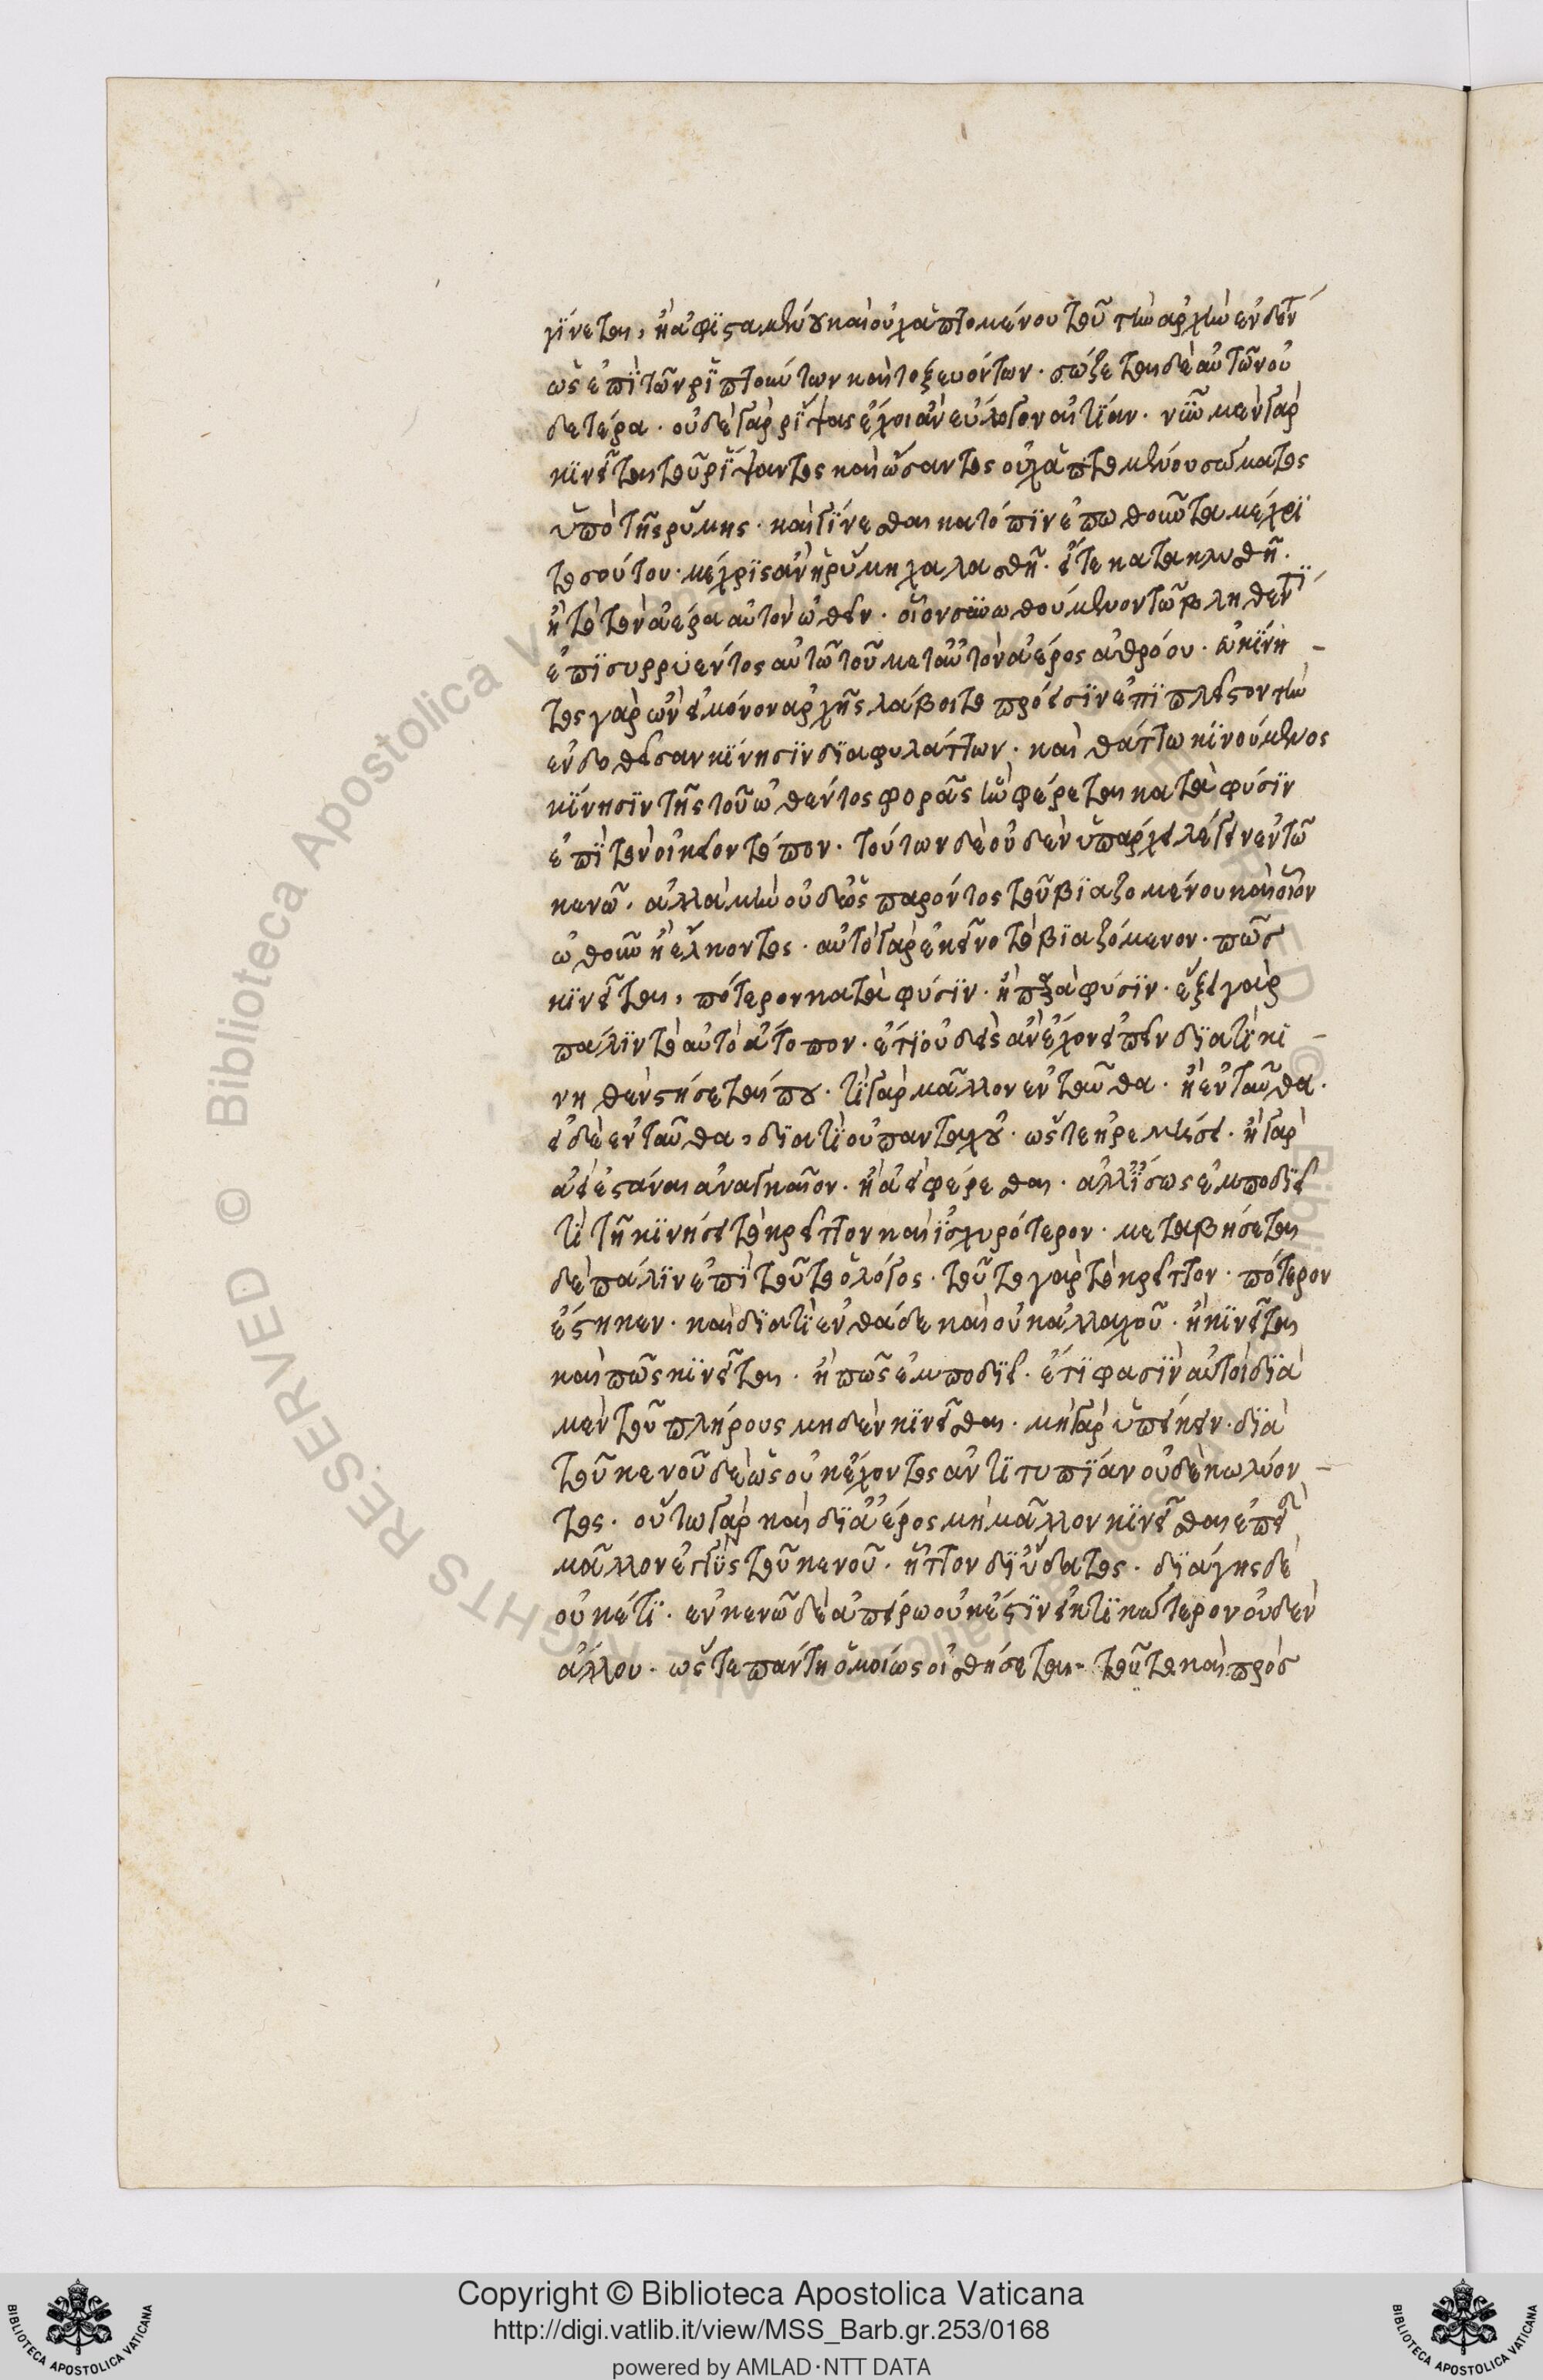 γίνεται, ἢ ἀφισταμένου καὶ οὐχ ἁπτομένου τοῦ τὴν ἀρχὴν ἐνδόντ
ὡς ἐπὶ τῶν ῥιπτούντων καὶ τοξευόντων. σώζεται δὲ αὐτῶν οὐ
δετέρα. οὐδὲ γὰρ ῥίψας ἔχοι ἂν εὔλογον αἰτίαν. νῦν μὲν γὰρ
κινεῖται τοῦ ῥίψαντος καὶ ὤσαντος οὐχ ἁπτομένου σώματος
ὑπὸ τῆς ῥύμης. καὶ γίνεσθαι κατόπιν ἐπωθοῦντα μέχρι
τοσούτου. μέχρις ἂν ἡ ῥύμη χαλασθῇ. εἴτε καταλυθῇ.
ἢ τὸ τὸν ἀέρα αὐτὸν ὠθεῖν. οἷον συνωθούμενον τῶ βληθέντι
ἐπισυρρυέντος αὐτῶ τοῦ μετ' αὐτὸν ἀέρος ἀθρόου. εὐκίνη -
τος γὰρ ὢν εἰ μόνον ἀρχῆς λάβοιτο πρόεισιν ἐπὶ πλεῖστον τὴν
ἐνδοθεῖσαν κίνησιν διαφυλάττων. καὶ θάττω κινούμενος
κίνησιν τῆς τοῦ ὠθέντος φορᾶς ἣν φέρεται κατὰ φύσιν
ἐπὶ τὸν οἰκεῖον τόπον. τούτων δὲ οὐδὲν ὑπάρχει λέγειν ἐν τῶ
κενῶ. ἀλλὰ μὴν οὐδ' ὡς παρόντος τοῦ βιαζομένου καὶ οἷον
ὠθοῦν ἢ ἕλκοντος. αὐτὸ γὰρ ἐκεῖνο τὸ βιαζόμενον. πῶς
κινεῖται, πότερον κατὰ φύσιν. ἢ παρὰ φύσιν. ἕξει γὰρ
πάλιν τὸ αὐτὸ ἄτοπον. ἔτι οὐδεὶς ἂν ἔχοι εἰπεῖν διατί κι -
νηθὲν στήσεται που. τί γὰρ μᾶλλον ἐνταῦθα. ἢ ἐνταῦθα.
εἰ δὲ ἐνταῦθα, διατί οὐ πανταχοῦ. ὥστε ἠρεμήσει. ἢ γὰρ
ἀεὶ ἑστάναι ἀναγκαῖον. ἢ ἀεὶ φέρεσθαι. ἀλλ' ἴσως ἐμποδιεῖ
τι τῆ κινήσει τὸ κρεῖττον καὶ ἰσχυρότερον. μεταβήσεται
δὲ πάλιν ἐπὶ τοῦτο ὁ λόγος. τοῦτο γὰρ τὸ κρεῖττον. πότερον
ἕστηκεν. καὶ διατί ἐνθάδε καὶ οὐκ ἀλλαχοῦ. ἢ κινεῖται
καὶ πῶς κινεῖται. ἢ πῶς ἐμποδιεῖ. ἔτι φασὶν αὐτοὶ διὰ
μὲν τοῦ πλήρους μηδὲν κινεῖσθαι. μὴ γὰρ ὑπείκειν. διὰ
τοῦ κενοῦ δὲ ὡς οὐκ ἔχοντος ἀντιτυπίαν οὐδὲ κωλύον -
τος. οὕτω γὰρ καὶ δι' ἀέρος μὴ μᾶλλον κινεῖσθαι ἐπεὶ
μᾶλλον ἐγγὺς τοῦ κενοῦ. ἧττον δι' ὕδατος. διὰ γῆς δὲ
οὐκέτι. ἐν κενῶ δὲ ἀπείρω οὐκ ἔστιν εἰκτικώτερον οὐδὲν
ἄλλου. ὥστε πάντη ὁμοίως οἰσθήσεται. τοῦτο καὶ πρὸς
Copyright © Biblioteca Apostolica Vaticana
http://digi.vatlib.it/view/MSS_Barb.gr.253/0168
powered by AMLAD·NTT DATA